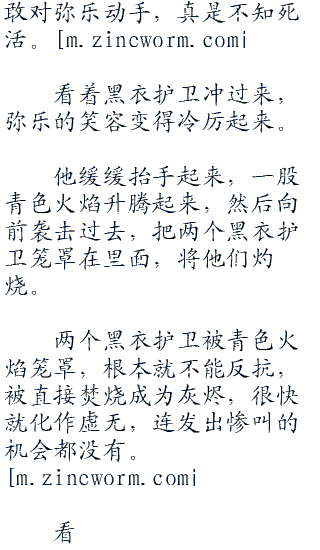 敢对弥乐动手，真是不知死
活。[m.zincworm.com]
看着黑衣护卫冲过来，
弥乐的笑容变得冷厉起来。
他缓缓抬手起来，一股
青色火焰升腾起来，然后向
前袭击过去，把两个黑衣护
卫笼罩在里面，将他们灼
烧。
两个黑衣护卫被青色火
焰笼罩，根本就不能反抗，
被直接焚烧成为灰烬，很快
就化作虚无，连发出惨叫的
机会都没有。
[m.zincworm.com]
看